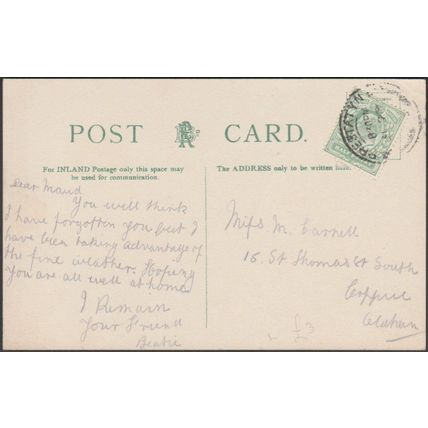 POST CARD.
For INLAND Postage only this space may
be used for communication.
The ADDRESS only to be written here.
PRESTATYN
Dear Maud
You will think
I have forgotten you but I
have been taking advantage of
the fine weather. Hoping
you are all well at home
I Remain
Your Friend
Beatie
Miss M.
16. St Thomas St South
Coppice
Oldham
£3